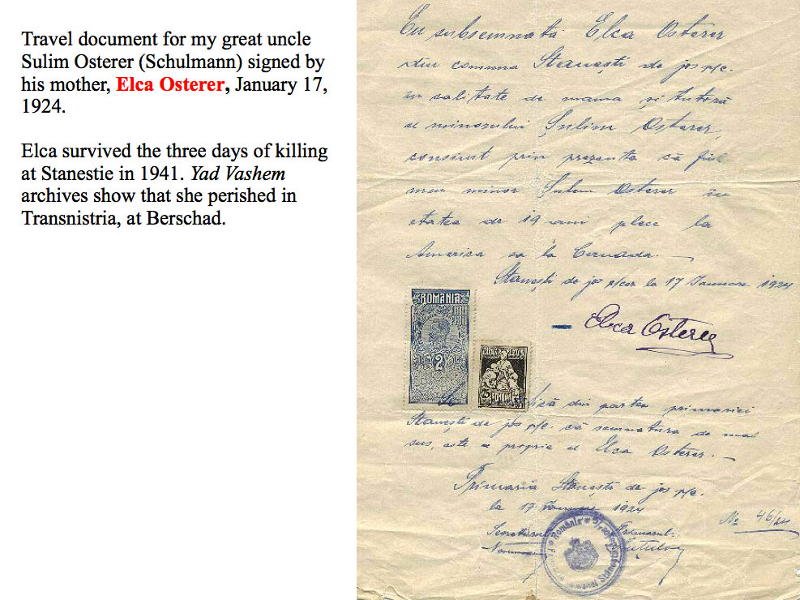 Travel document for my great uncle
Sulim Osterer (Schulmann) signed by
his mother, Elca Osterer, January 17,
1924.
Elca survived the three days of killing
at Stanestie in 1941. Yad Vashem
archives show that she perished in
Transnistria, at Berschad.
Eu subsemnata Elca Osterer
din comuna Stanești de jos p/c.
in calitate de mama și tutoră
al minorului Șulim Osterer,
consimt prin prezenta că fiul
meu minor Șulim Osterer in
etatea de 19 ani plece la
America sa la Cannada.
Stanești de jos p/cer la 17 Ianuarie 1924
Elca Osterer
ROMANIA
2
din partea primariei
Stanești de jos p/c. că semnatura de mai
sus, este a propria a Elca Osterer.
Primaria Stanești de jos p/c.
la 17 Ianuarie 1924
No 46/24